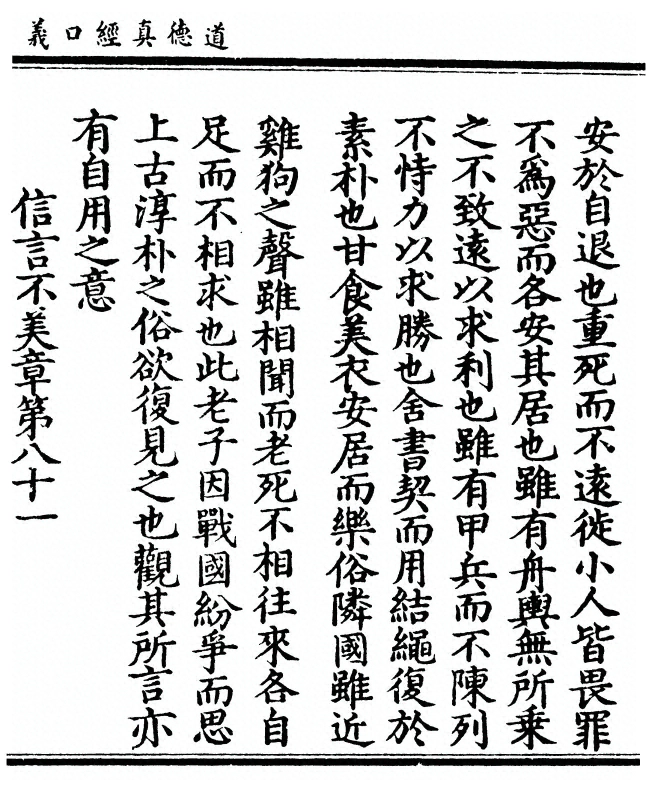 道德真經口義
安於自退也重死而不遠徙小人皆畏罪
不爲惡而各安其居也雖有舟輿無所乗
之不致遠以求利也雖有甲兵而不陳列
不恃力以求勝也舍書契而用結繩復於
素朴也甘食美衣安居而樂俗隣國雖近
雞狗之聲雖相聞而老死不相往來各自
足而不相求也此老子因戰國紛爭而思
上古淳朴之俗欲復見之也觀其所言亦
有自用之意
信言不美章第八十一